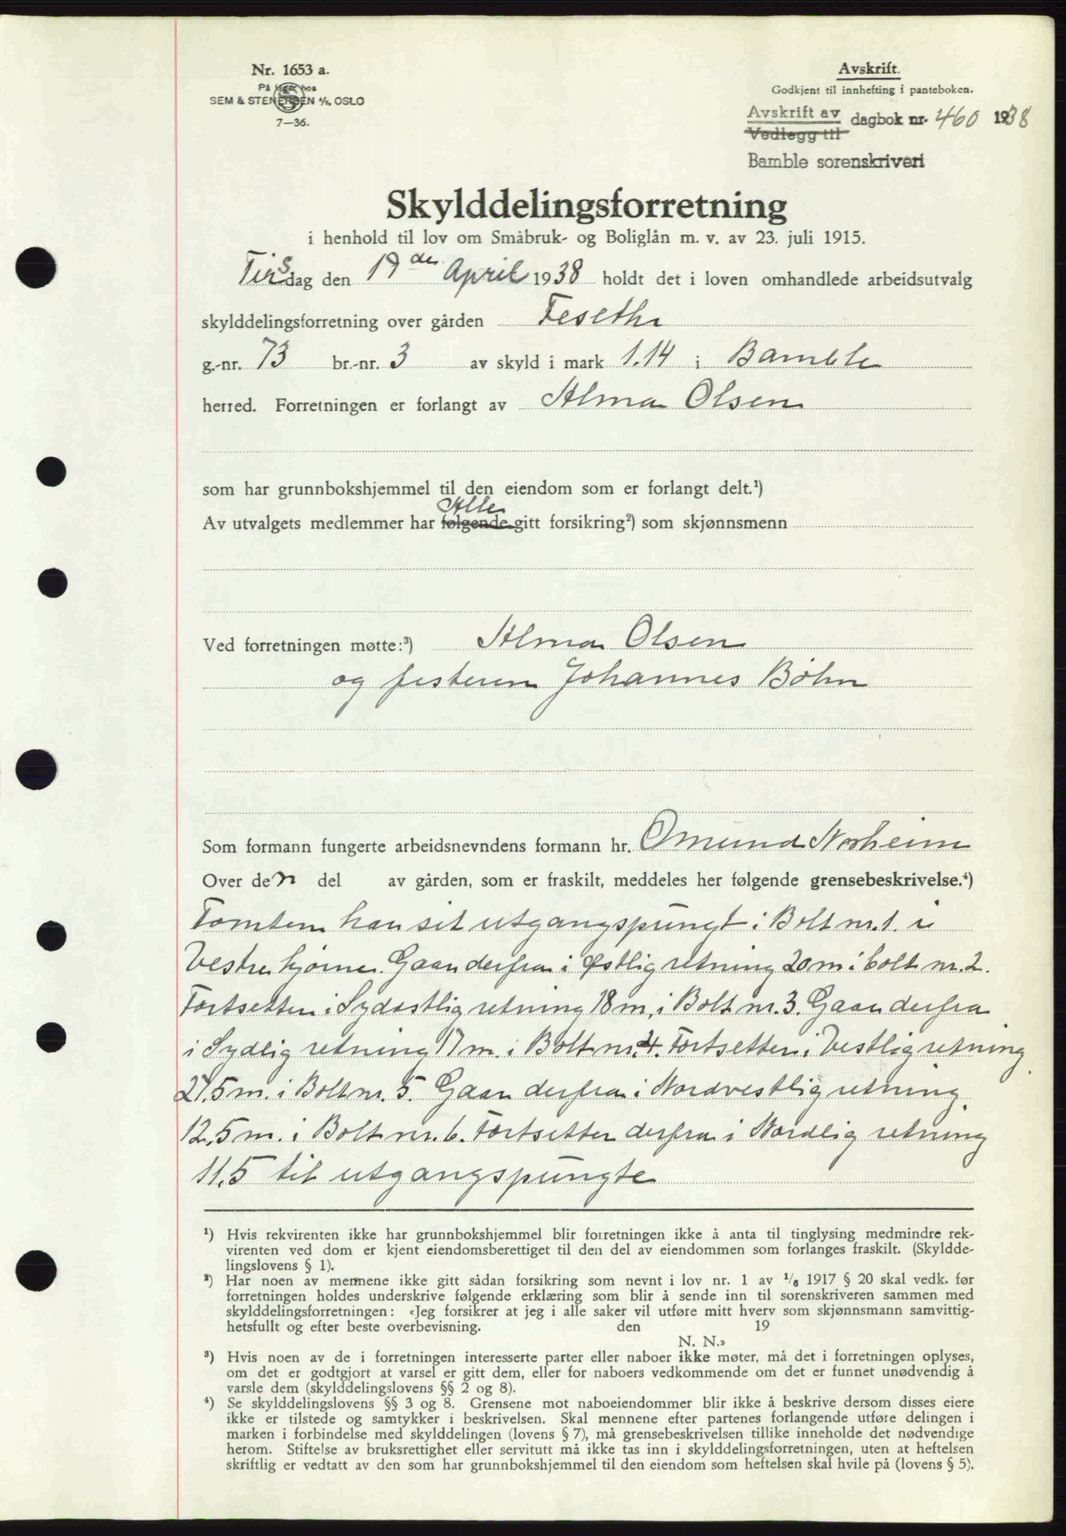 Nr. 1653 a.
På lager hos
SEM & STENERSEN A/S, OSLO
7—36.
Avskrift.
Godkjent til innhefting i panteboken.
Avskrift av
Vedlegg til
dagbok nr. 460 1938
Bamble sorenskriveri
Skylddelingsforretning
i henhold til lov om Småbruk- og Boliglån m. v. av 23. juli 1915.
Tirsdag den 19 de April 1938 holdt det i loven omhandlede arbeidsutvalg
skylddelingsforretning over gården Feseth
g.-nr. 73 br.-nr. 3 av skyld i mark 1.14 i Bamble
herred. Forretningen er forlangt av Alma Olsen
som har grunnbokshjemmel til den eiendom som er forlangt delt.¹)
Alle
Av utvalgets medlemmer har følgende gitt forsikring²) som skjønnsmenn
Ved forretningen møtte:³) Alma Olsen
og festeren Johannes Böhn
Som formann fungerte arbeidsnevndens formann hr. Omund Norheim
Over den del av gården, som er fraskilt, meddeles her følgende grensebeskrivelse.⁴)
Tomten har sit utgangspungt i Bolt nr. 1. i
Vestre hjørne. Gaar derfra i Østlig retning 20 m i bolt nr. 2.
Fortsetter i Sydøstlig retning 18 m, i Bolt nr. 3. Gaar derfra
i Sydlig retning 17 m. i Bolt nr. 4. Fortsetter i Vestlig retning
27,5 m. i Bolt nr. 5. Gaar derfra i Nordvestlig retning
12,5 m. i Bolt nr. 6. Fortsetter derfra i Nordlig retning
11,5 til utgangspungte
¹) Hvis rekvirenten ikke har grunnbokshjemmel blir forretningen ikke å anta til tinglysing medmindre rek-
virenten ved dom er kjent eiendomsberettiget til den del av eiendommen som forlanges fraskilt. (Skyldde-
lingslovens § 1).
²) Har noen av mennene ikke gitt sådan forsikring som nevnt i lov nr. 1 av 1/6 1917 § 20 skal vedk. før
forretningen holdes underskrive følgende erklæring som blir å sende inn til sorenskriveren sammen med
skylddelingsforretningen: «Jeg forsikrer at jeg i alle saker vil utføre mitt hverv som skjønnsmann samvittig-
hetsfullt og efter beste overbevisning. den 19
N. N.»
³) Hvis noen av de i forretningen interesserte parter eller naboer ikke møter, må det i forretningen oplyses,
om det er godtgjort at varsel er gitt dem, eller for naboers vedkommende om det er funnet unødvendig å
varsle dem (skylddelingslovens §§ 2 og 8).
⁴) Se skylddelingslovens §§ 3 og 8. Grensene mot naboeiendommer blir ikke å beskrive dersom disses eiere
ikke er tilstede og samtykker i beskrivelsen. Skal mennene efter partenes forlangende utføre delingen i
marken i forbindelse med skylddelingen (lovens § 7), må grensebeskrivelsen tillike inneholde det nødvendige
herom. Stiftelse av bruksrettighet eller servitutt må ikke tas inn i skylddelingsforretningen, uten at heftelsen
skriftlig er vedtatt av den som har grunnbokshjemmel til den eiendom som heftelsen skal hvile på (lovens § 5).